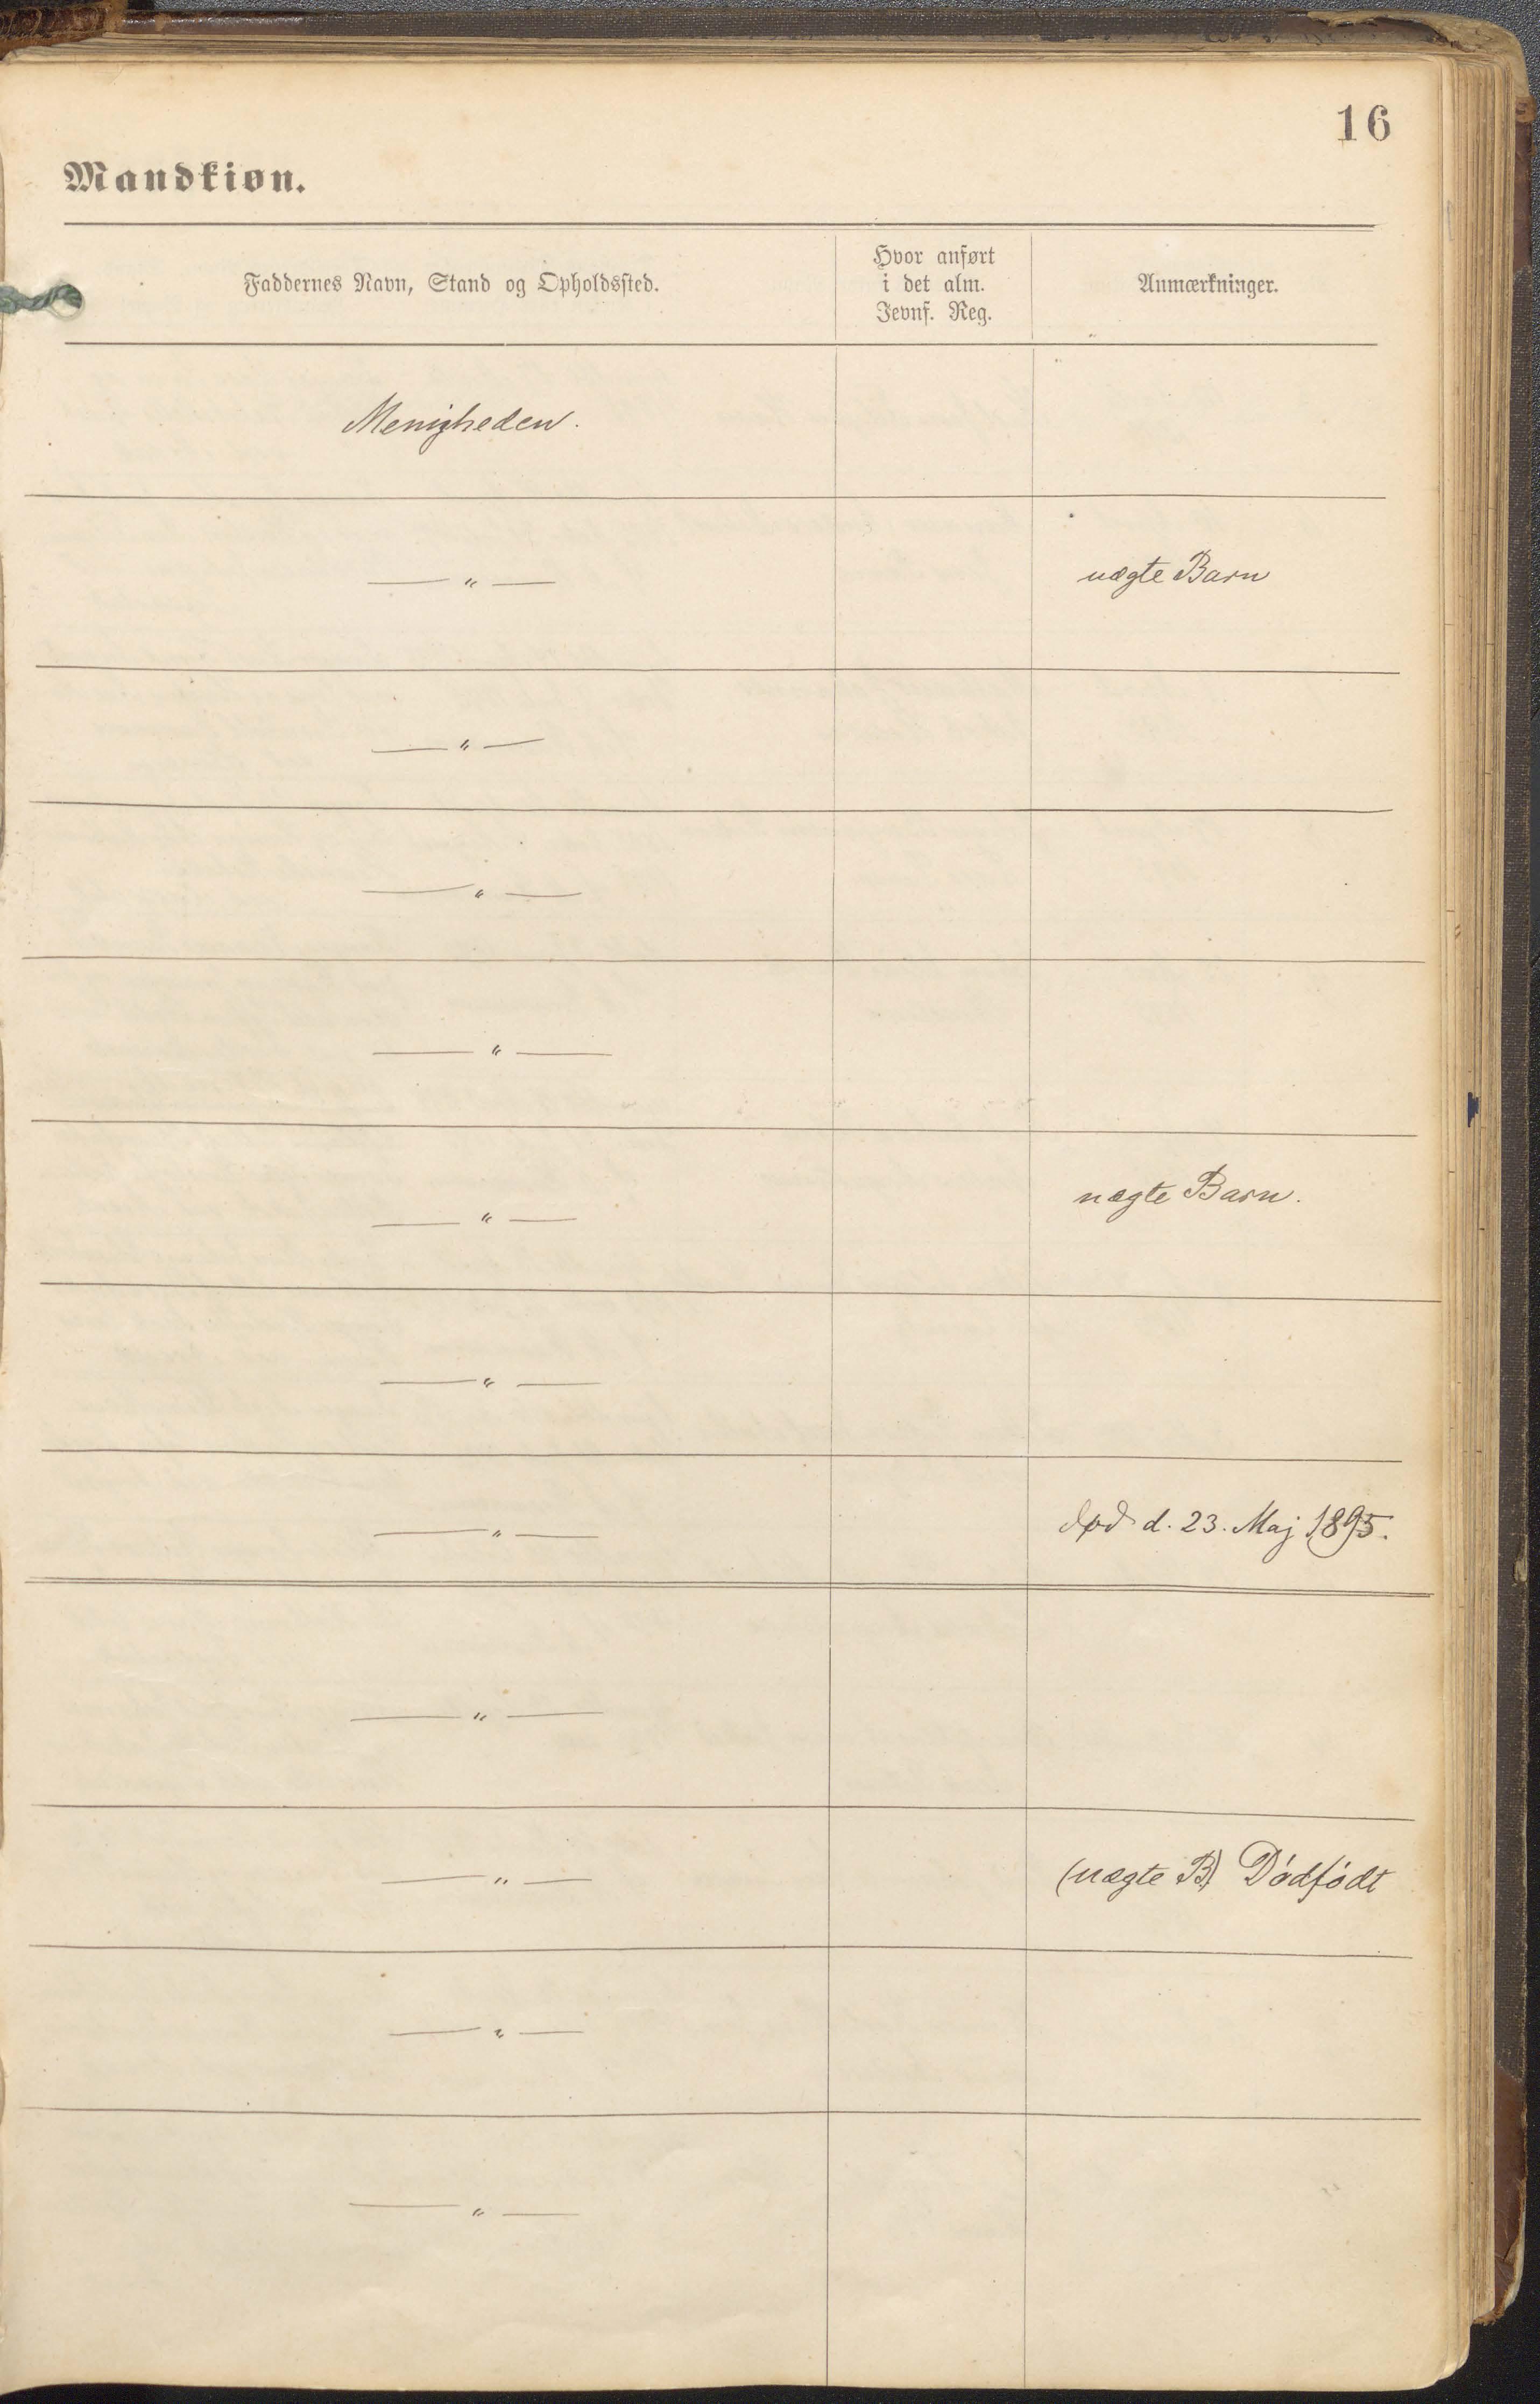 16
Mandkiøn.
Faddernes Navn, Stand og Opholdssted.
Hvor anført
i det alm.
Jevnf. Reg.
Anmærkninger.
Menigheden.
— " —
uægte Barn
— " —
— " —
— " —
— " —
uægte Barn.
— " —
— " —
død d. 23. Maj 1895.
— " —
— " —
(uægte B) Dødfødt
— " —
— " —